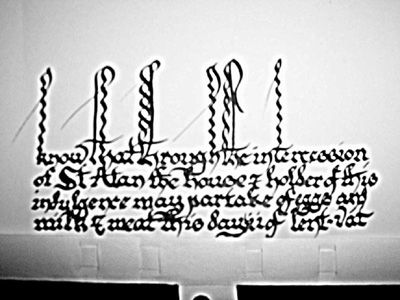 know that through the intercession
of St Alan the house & holder of this
indulgence may partake of eggs and
milk & meat this day of lent